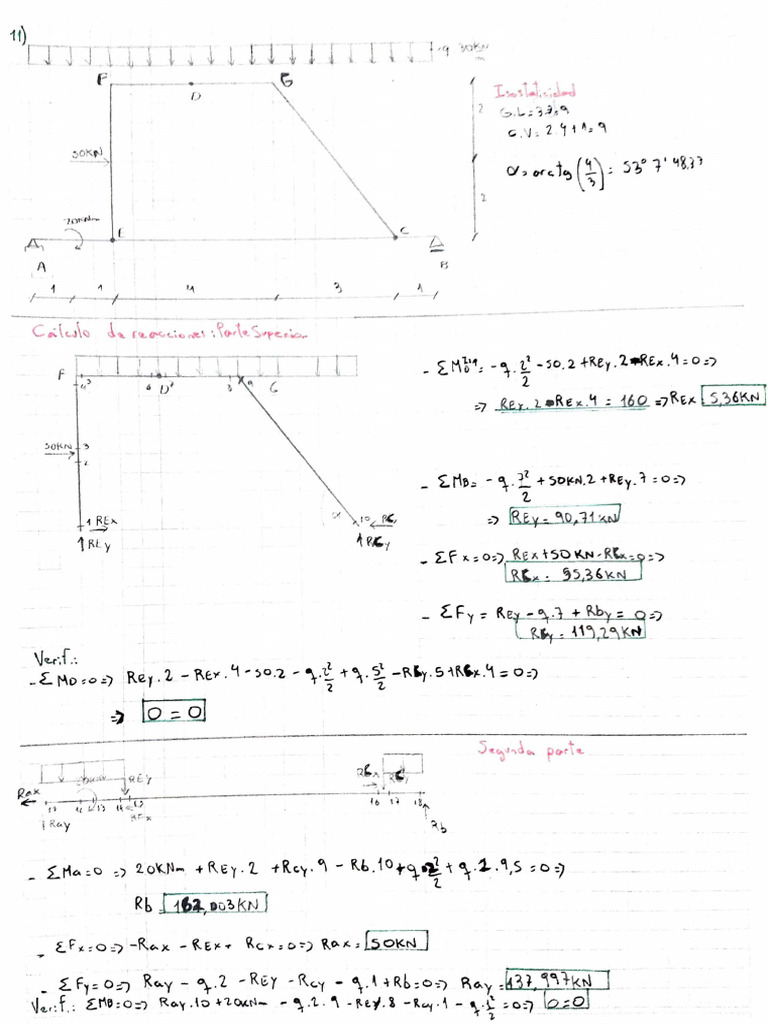 11)
q 30KN/m
F
G
D
50KN
20KNm
E
C
A
B
1 1 4 3 1
2
2
Isostaticidad
G.L = 3.3 = 9
C.V = 2.4 + 1 = 9
α = arctg (4/3) = 53° 7' 48.37
Cálculo de reacciones: Parte Superior
F
D
G
50KN
REx
REy
α
RCx
RCy
- Σ M_D^Izq = -q. 2²/2 - 50.2 + REy.2 - REx.4 = 0 =>
=> REy.2 - REx.4 = 160 => REx 5,36KN
- Σ MB = -q. 7²/2 + 50KN.2 + REy.7 = 0 =>
=> REy = 90,71KN
- ΣFx = 0 => REx + 50KN - RCx = 0 =>
RCx = 55,36KN
- ΣFy = REy - q.7 + Rby = 0 =>
RCy = 119,29KN
Verif.:
- Σ MD = 0 => REy.2 - REx.4 - 50.2 - q. 2²/2 + q. 5²/2 - RCy.5 + RCx.4 = 0 =>
=> 0 = 0
Segunda parte
REy
RCx
RCy
Rax
Ray
REx
Rb
- ΣMa = 0 => 20KNm + REy.2 + RCy.9 - Rb.10 + q. 2²/2 + q.1.9,5 = 0 =>
Rb = 162,003KN
- ΣFx = 0 => -Rax - REx + RCx = 0 => Rax = 50KN
- ΣFy = 0 => Ray - q.2 - REy - RCy - q.1 + Rb = 0 => Ray = 137,997KN
Verif.: ΣMB = 0 => Ray.10 + 20KNm - q.2.9 - REy.8 - RCy.1 - q. 1²/2 = 0 => 0 = 0